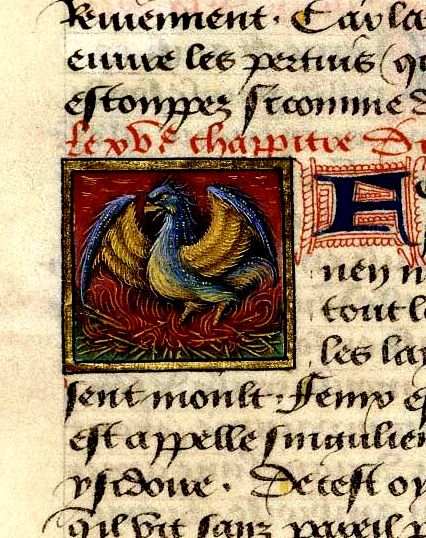 Reviennent. Car la
euuure les pertuis (q
estouppez sicomme d
le xv.e chappitre D
A
uen n
tout l
les la
sent moult. Fenix es
est appelle singulier
ysidore. De cest oy
qil vit sanz pareil p